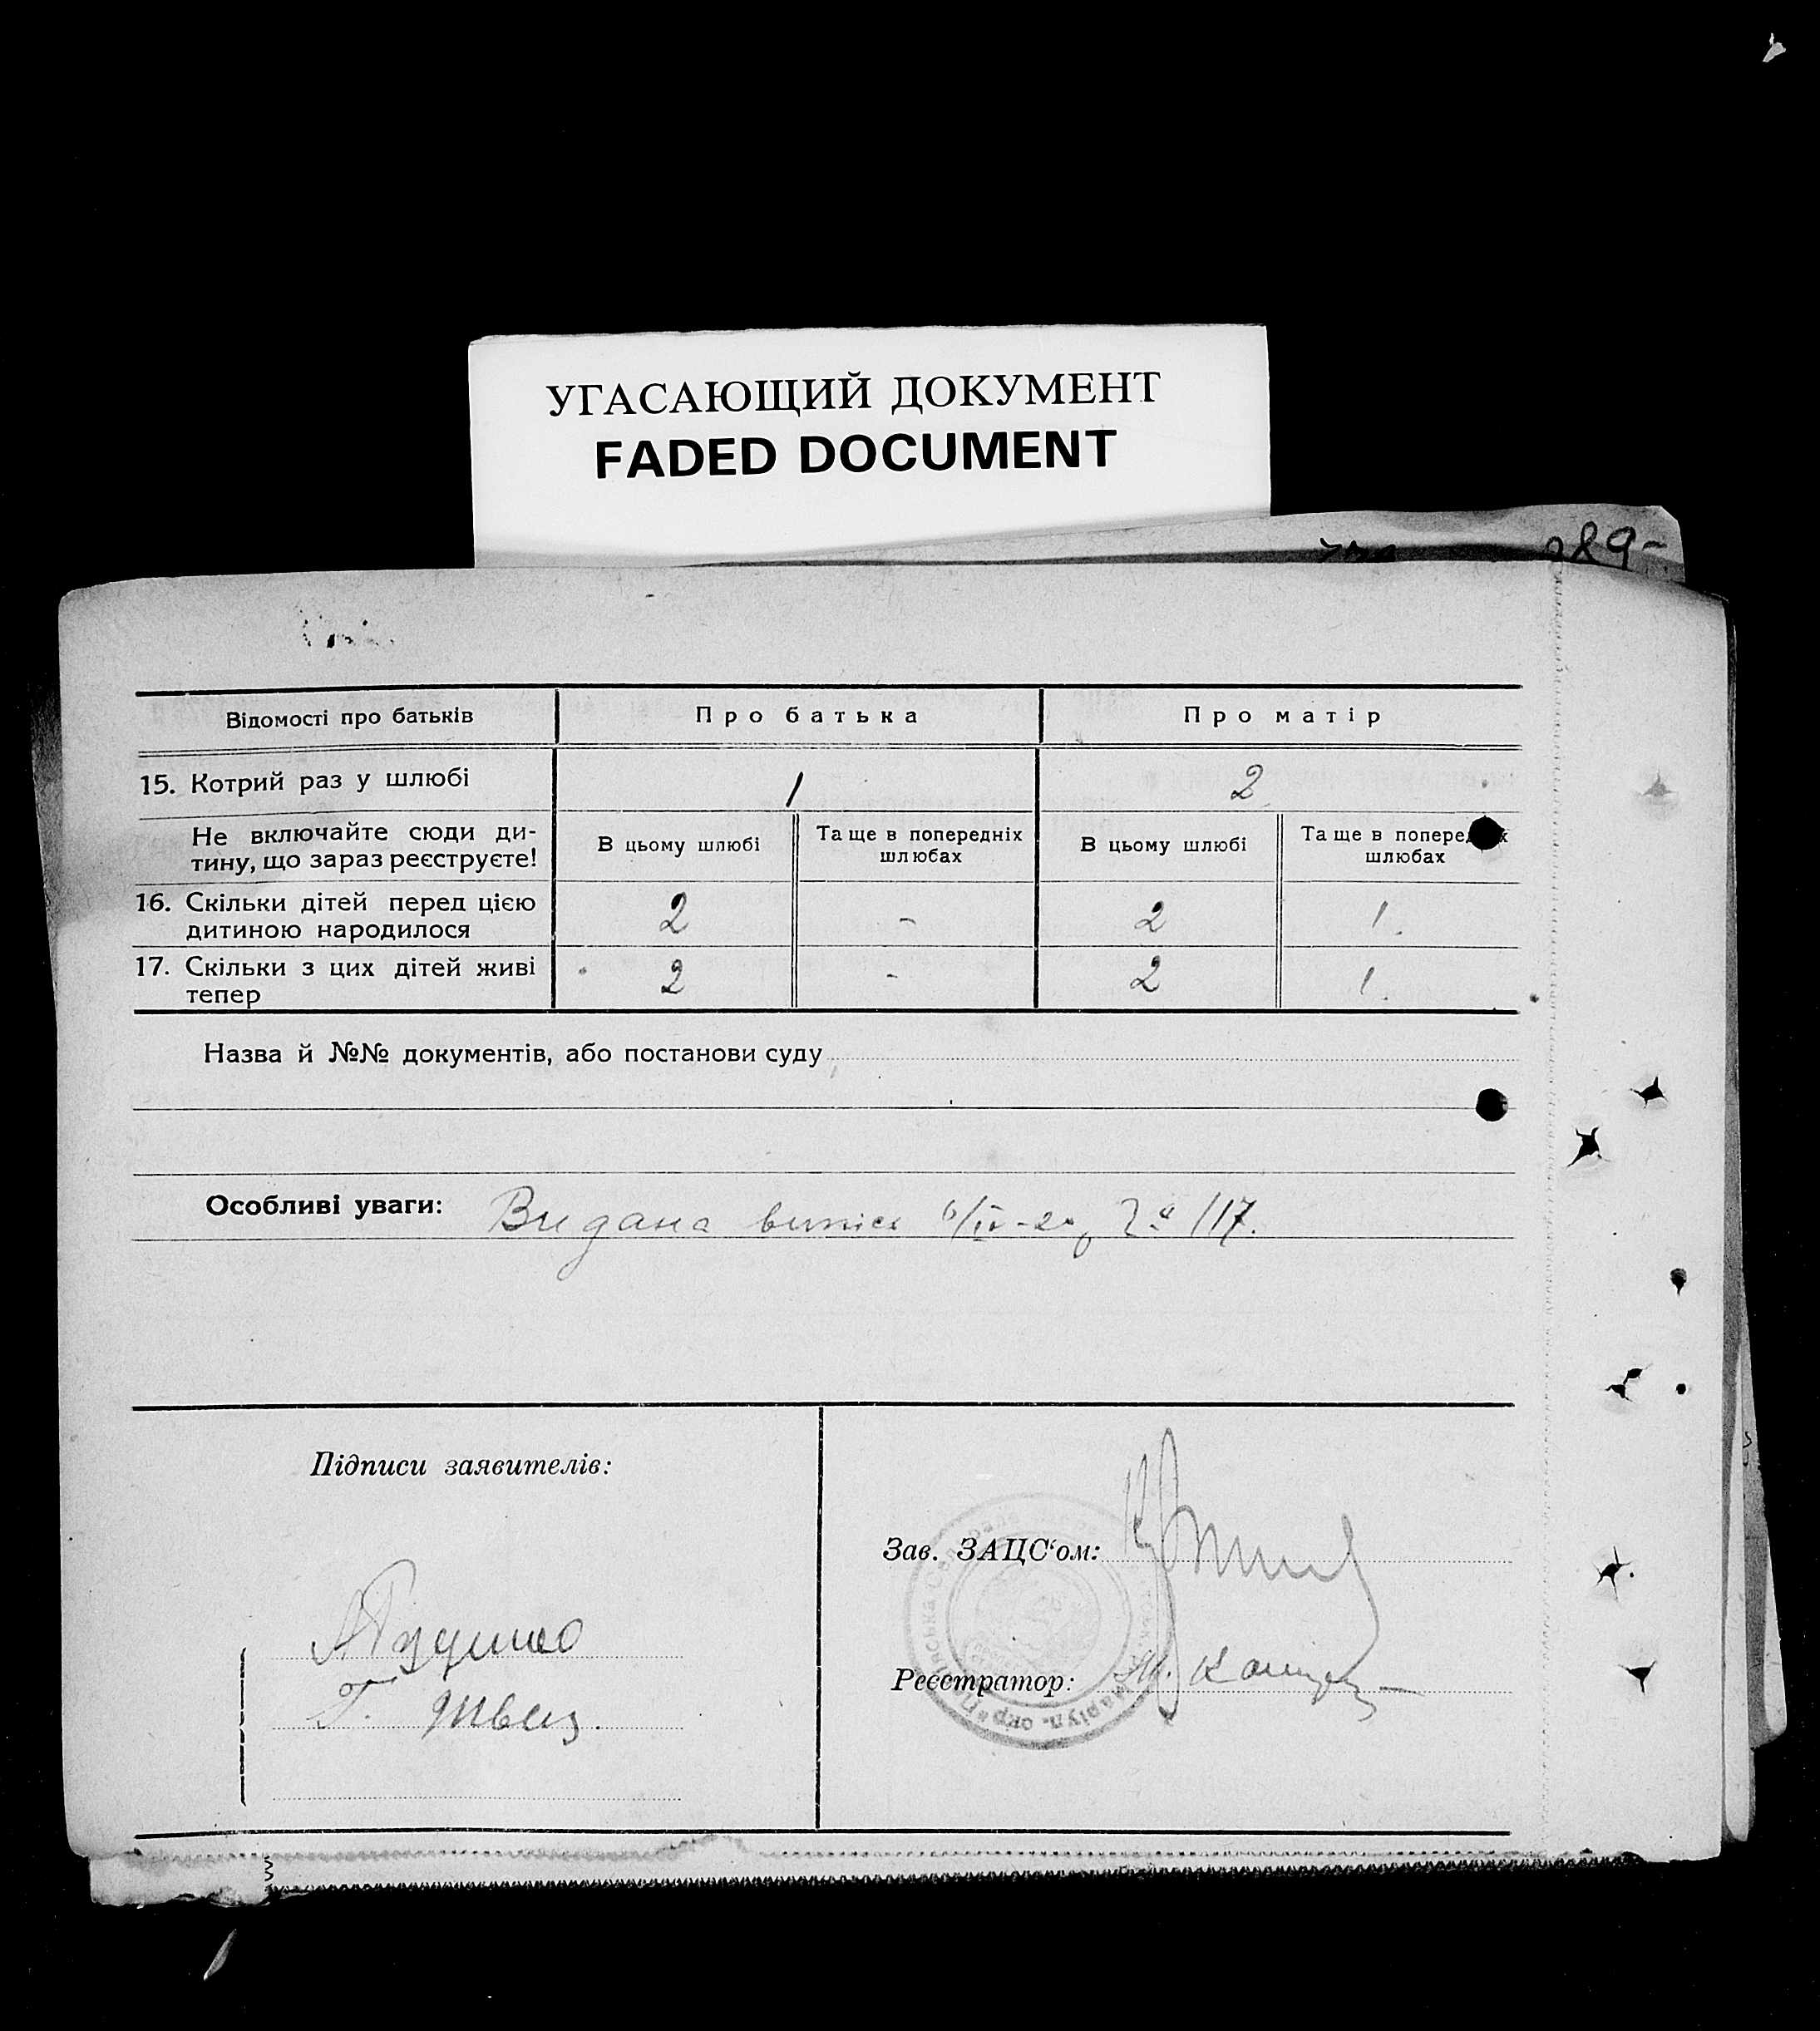 УГАСАЮЩИЙ ДОКУМЕНТ
FADED DOCUMENT
289-
Відомості про батьків
Про батька
Про матір
15. Котрий раз у шлюбі
1
2
Не включайте сюди ди-
тину, що зараз реєструєте!
В цьому шлюбі
Та ще в попередніх
шлюбах
В цьому шлюбі
Та ще в попередніх
шлюбах
16. Скільки дітей перед цією
дитиною народилося
2
-
2
1.
17. Скільки з цих дітей живі
тепер
2
-
2
1.
Назва й №№ документів, або постанови суду
Особливі уваги: Видана випись 6/IV-29 /17.
Підписи заявителів:
Зав. ЗАЦС'ом:
Г. Швец.
Реєстратор:
Маріуп. окр